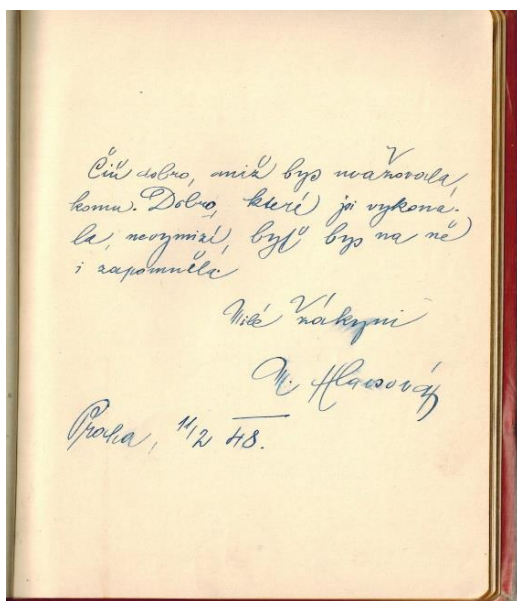 Čiň dobro, aniž bys uvažovala,
komu. Dobro, které jsi vykona-
la, nevymizí, byť bys na ně
i zapomněla.
Milé žákyni
M. Hlavsová
Praha, 11/2 48.